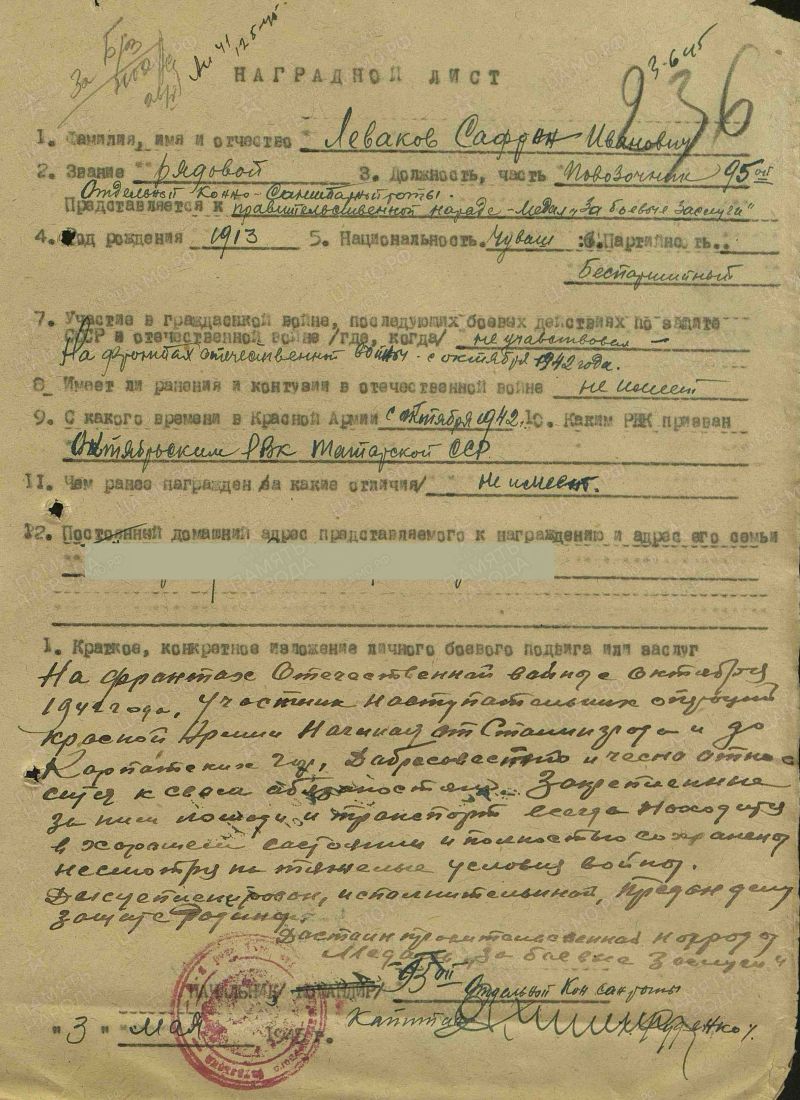 За
№ 41
12.5.45
3-6-45
936
НАГРАДНОЙ ЛИСТ
1. Фамилия, имя и отчество Леваков Сафрон Иванович
2. Звание рядовой 3. Должность, часть Повозочник 95 ой
Отдельной Конно-Санитарной роты.
Представляется к правительственной награде - Медал "За боевые заслуги"
4. Год рождения 1913 5. Национальность. Чуваш 6. Партийность..
беспартийный
7. Участие в гражданской войне, последующих боевых действиях по защите
СССР и отечественной войне /где, когда/ не участвовал -
На фронтах отечественной войны - с октября 1942 года.
8. Имеет ли ранения и контузии в отечественной войне не имеет
9. С какого времени в Красной Армии с октября 1942. 10. Каким РВК призван
Октябрьским РВК Татарской ССР
11. Чем ранее награжден /за какие отличия/ не имеет.
12. Постоянный домашний адрес представляемого к награждению и адрес его семьи
1. Краткое, конкретное изложение личного боевого подвига или заслуг
На франтах Отечественной войны с октября
1942 года, Участник наступательных операций
красной Армии Начиная от Сталинграда и до
Карпатских гор, Дабресовестно и чесно относ
сится к своем обязаностям. Закрепленные
за ним лошади и транспорт всегда находится
в харашем состоянии и полностью сохранены
несмотря на тяжелые условия войны.
Дисциплинирован, исполнительный, предан делу
защите Родины.
Достоин правительственной награды
Медаль "За боевые заслуги"
НАЧАЛЬНИК /КОМАНДИР/ 95 ой Отдельной Кон сан роты
"3" мая 1945 г. Капитан